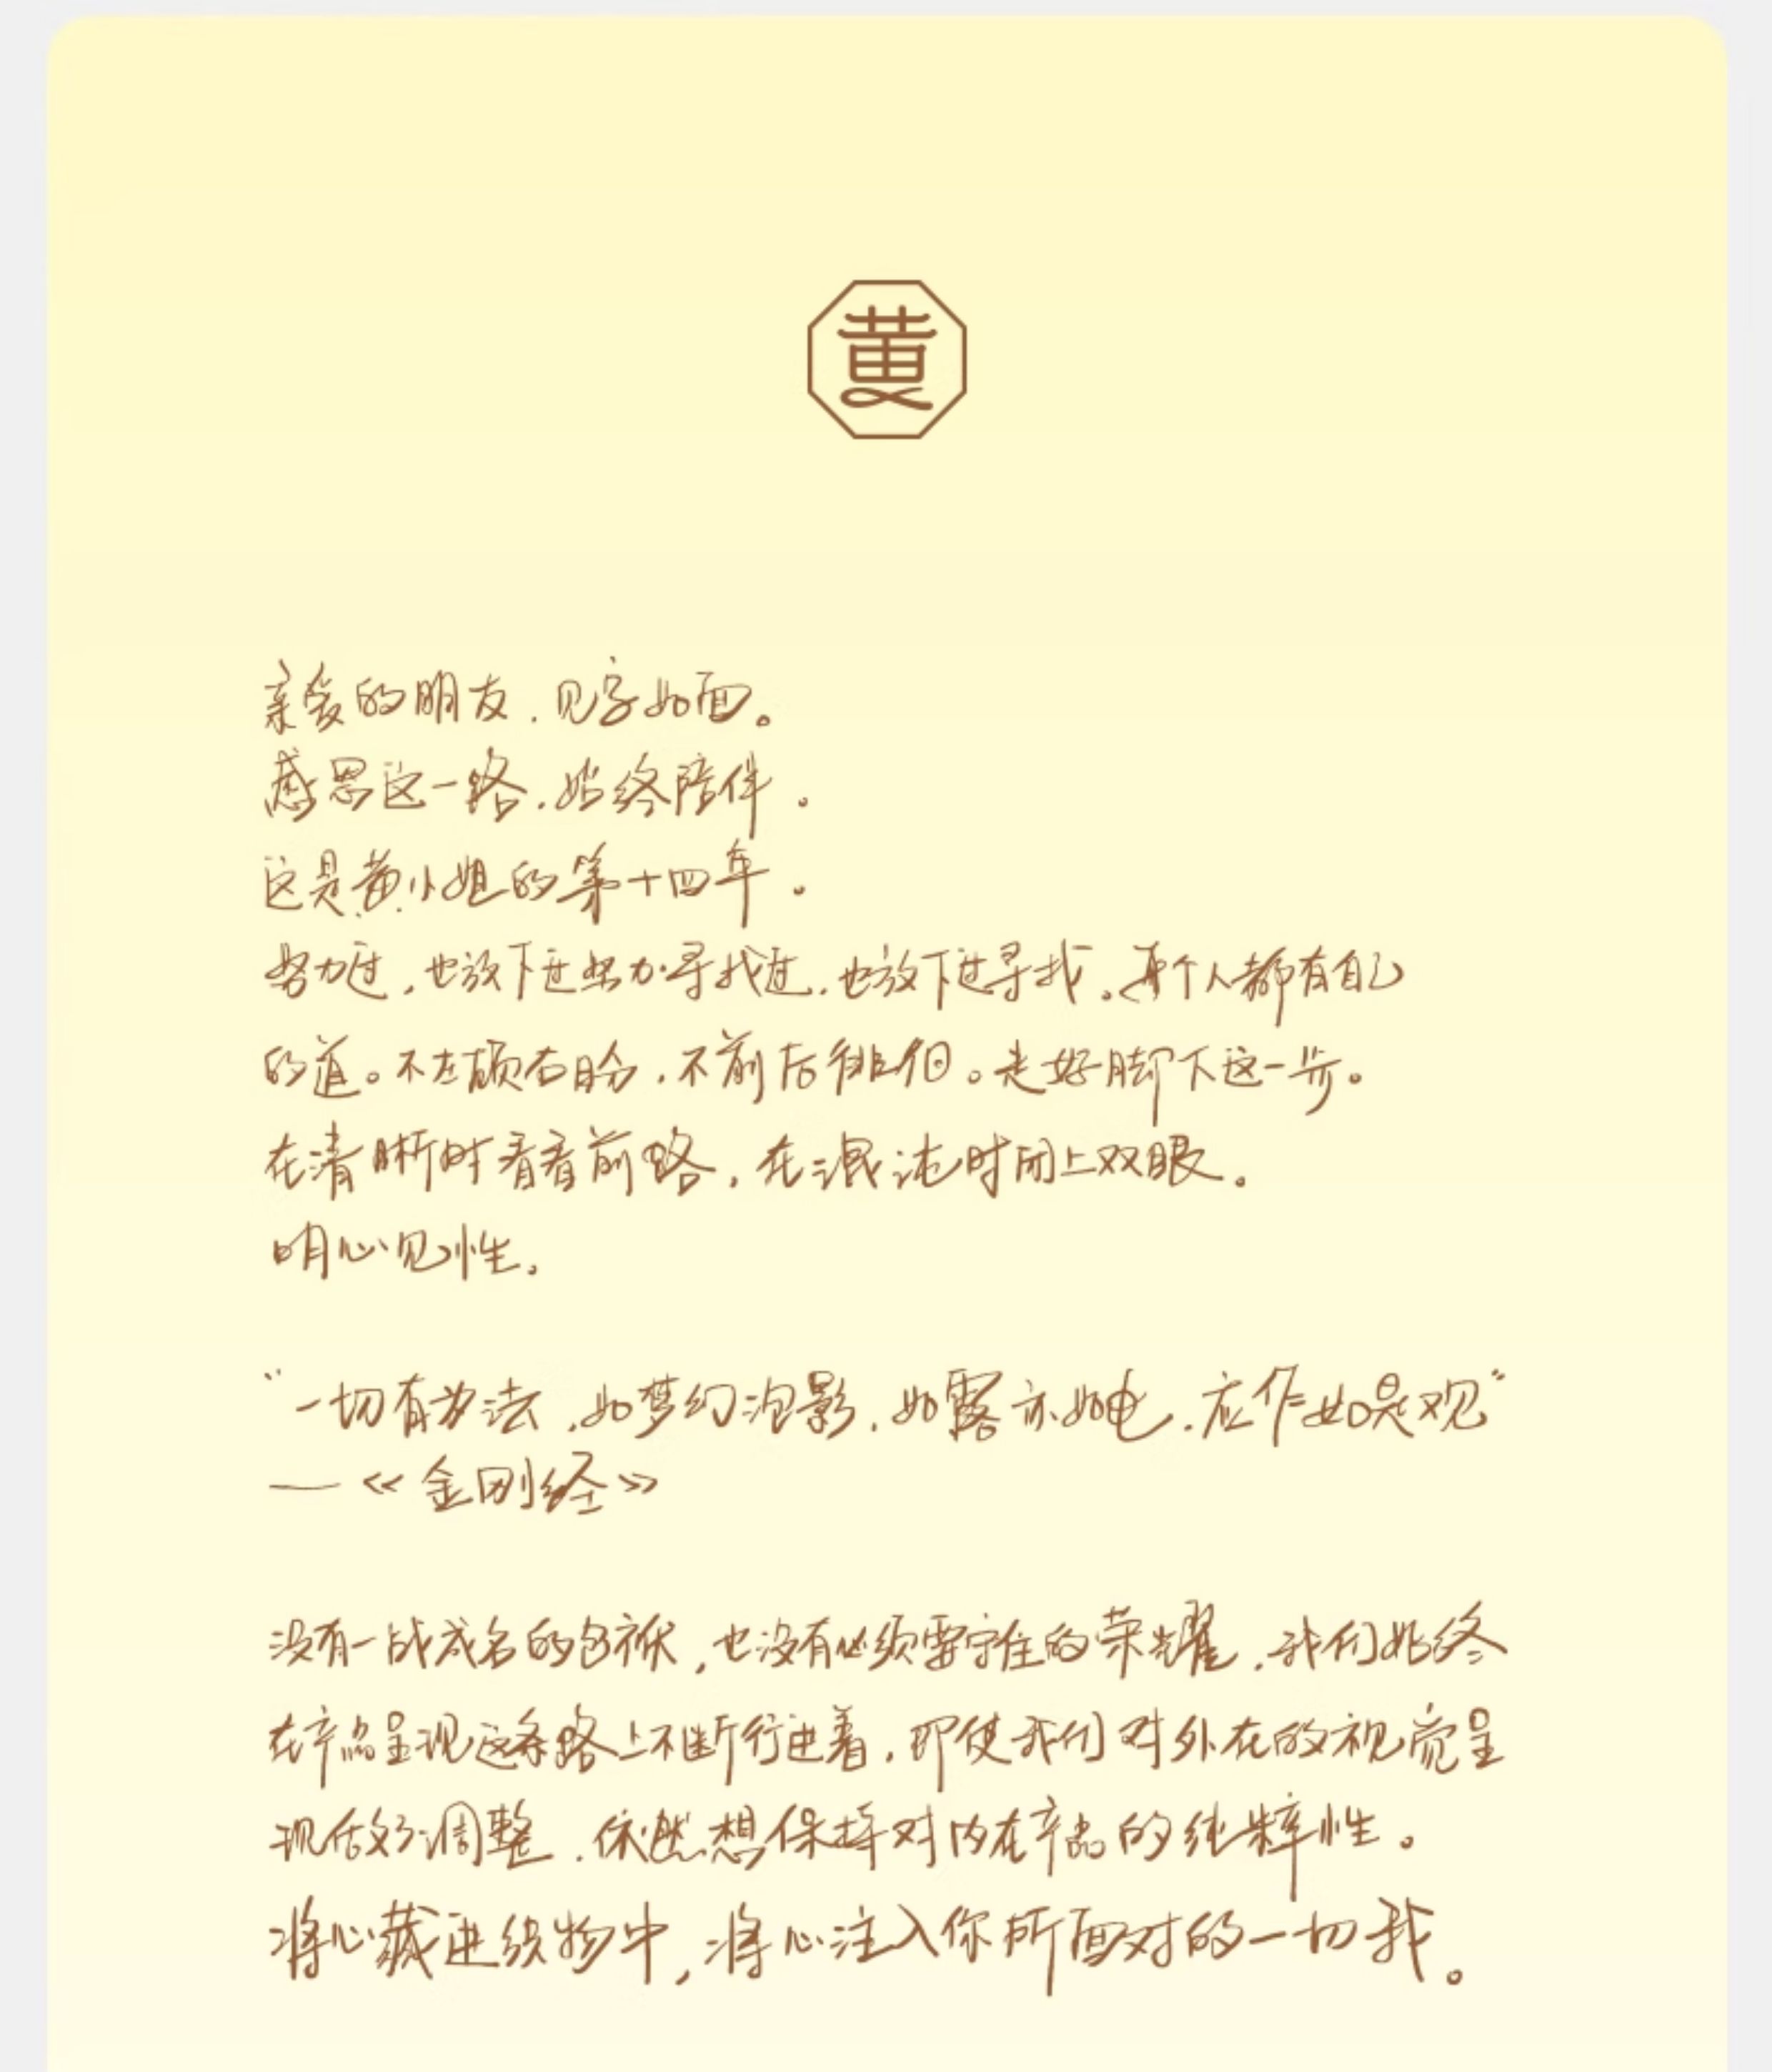 黄
亲爱的朋友，见字如面。
感恩这一路，始终陪伴。
这是黄小姐的第十四年。
努力过，也放下过努力·寻找过，也放下过寻找。每个人都有自己
的道。不左顾右盼，不前后徘徊。走好脚下这一步。
在清晰时看看前路，在混沌时闭上双眼。
明心见性。
“一切有为法，如梦幻泡影，如露亦如电，应作如是观”
—《金刚经》
没有一战成名的包袱，也没有必须要守住的荣耀，我们始终
在产品呈现这条路上不断行进着，即使我们对外在的视觉呈
现做了调整，依然想保持对内在产品的纯粹性。
将心藏进织物中，将心注入你所面对的一切我。